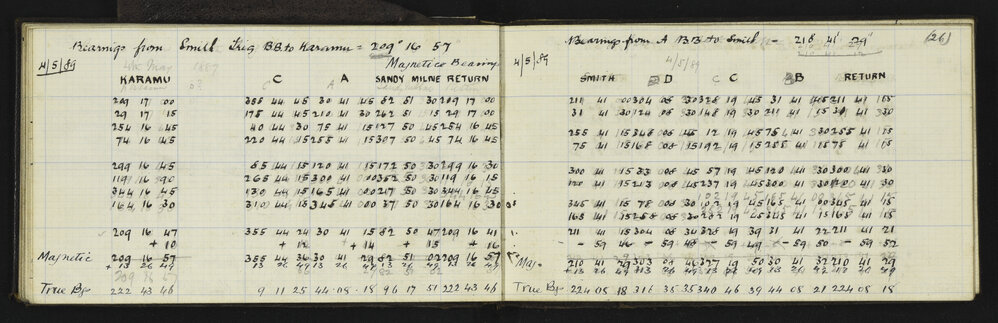 Bearings from Smith Trig BB to Karamu = 209° 16 57"
Magnetic Bearing
4/5/89
KARAMU C A SANDY MILNE RETURN
209 17 00 355 44 45 30 41 45 82 51 30 209 17 00
29 17 15 175 44 45 210 41 30 262 51 15 29 17 00
254 16 45 40 44 30 75 41 15 127 50 45 254 16 45
74 16 45 220 44 45 255 41 15 307 50 45 74 16 45
299 16 45 85 44 15 120 41 15 172 50 30 299 16 30
119 16 30 265 44 15 300 41 00 352 50 30 119 16 15
344 16 45 130 44 15 165 41 00 217 50 30 344 16 45
164 16 30 310 44 15 345 41 00 37 50 30 164 16 30
209 16 47 355 44 24 30 41 15 82 50 47 209 16 41
+ 10 + 12 + 14 + 15 + 16
Magnetic 209 16 57 355 44 36 30 41 29 82 51 02 209 16 57
+ 13 26 49 13 26 49 13 26 49 13 26 49 13 26 49
True Bg 222 43 46 9 11 25 44 08 18 96 17 51 222 43 46
(26)
Bearings from A BB to Smith = 210 41 29
4/5/89
4/5/89
SMITH D C B RETURN
211 41 00 304 08 30 328 19 45 31 41 45 211 41 15
31 41 30 124 08 30 148 19 30 211 41 15 31 41 30
255 41 15 348 08 45 12 19 45 75 41 30 255 41 15
75 41 15 168 08 15 192 19 15 255 41 15 75 41 15
300 41 15 33 08 45 57 19 45 120 41 30 300 41 30
120 41 15 213 08 45 237 19 45 300 41 30 120 41 30
345 41 15 78 08 30 102 19 45 165 41 00 345 41 15
165 41 15 258 08 30 282 19 45 345 41 15 165 41 15
211 41 15 304 08 34 328 19 39 31 41 22 211 41 21
- 59 46 - 59 48 - 59 49 - 59 50 - 59 52
Mag. 210 41 29 303 08 46 327 19 50 30 41 32 210 41 29
+ 13 26 49 13 26 49 13 26 49 13 26 49 13 26 49
True Bg 224 08 18 316 35 35 340 46 39 44 08 21 224 08 18